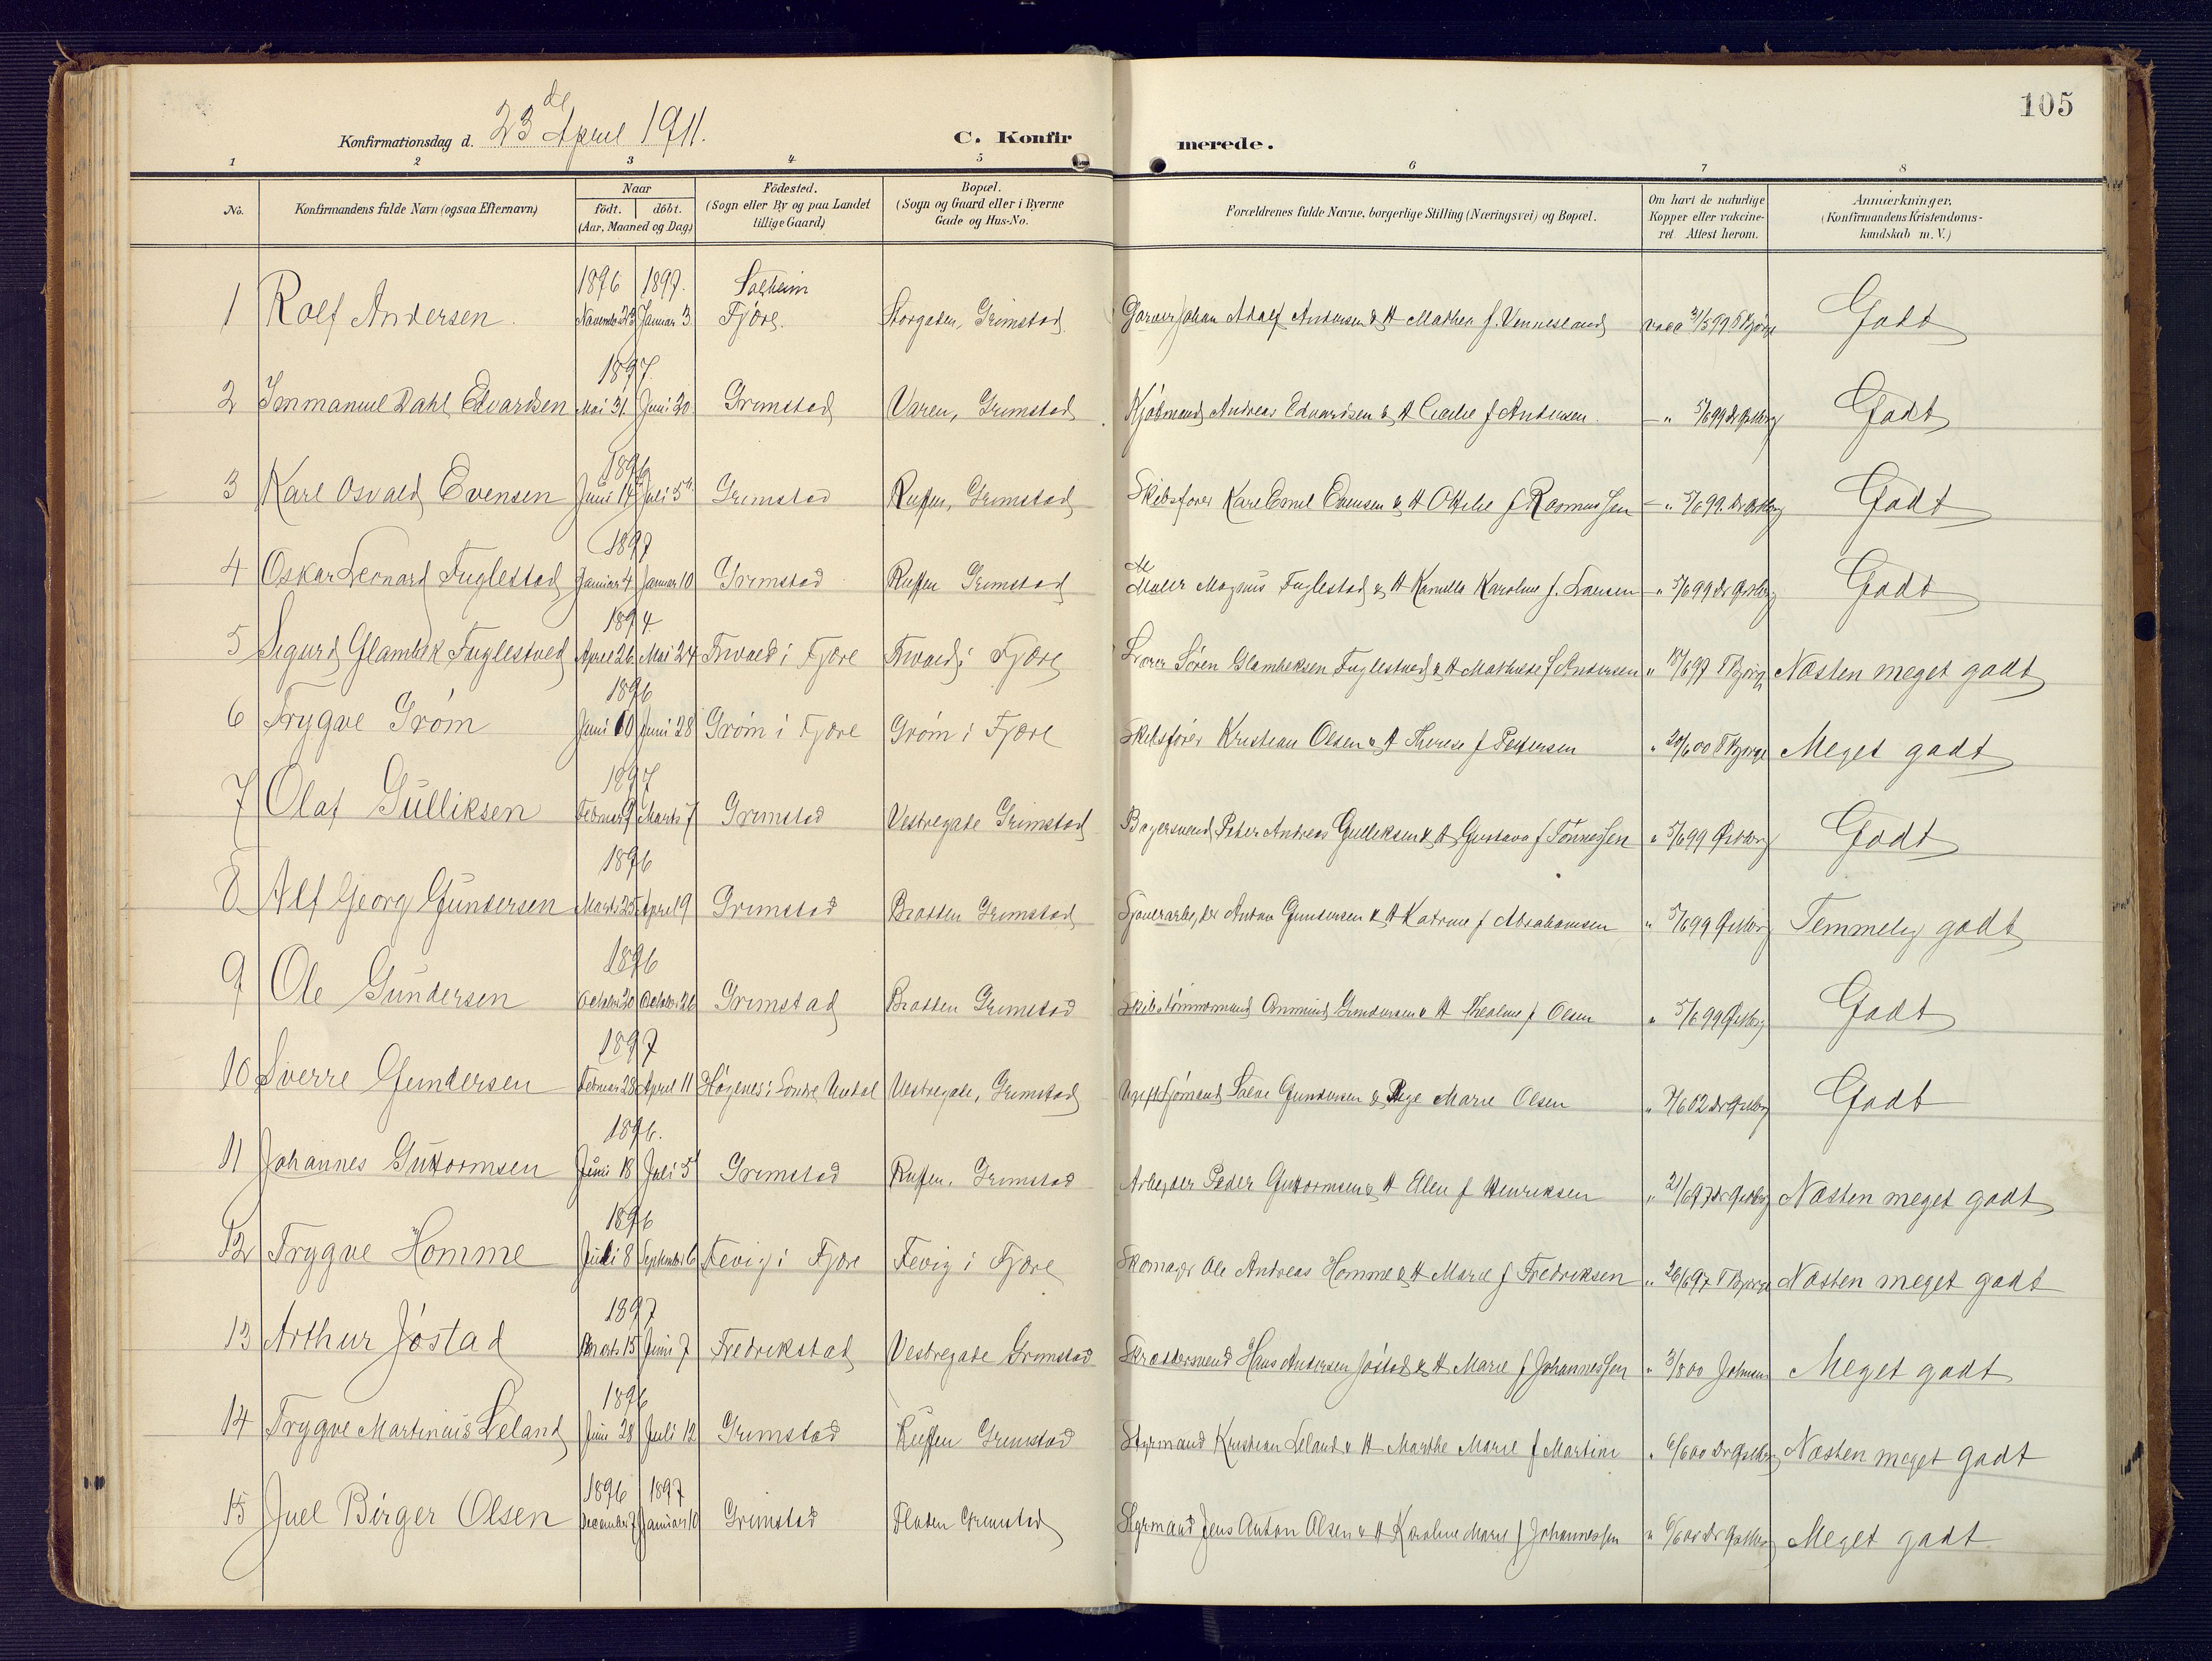 105
Konfirmationsdag d. 23de April 1911. C. Konfirmerede.
1 2 3 4 5 6 7 8
No. Konfirmandens fulde Navn (ogsaa Efternavn) Naar født. døbt. (Aar, Maaned og Dag) Födested. (Sogn eller By og paa Landet tillige Gaard) Bopæl. (Sogn og Gaard eller i Byerne Gade og Hus-No. Forældrenes fulde Navne, borgerlige Stilling (Næringsvei) og Bopæl. Om havt de naturlige Kopper eller vakcineret. Attest herom. Anmærkninger, (Konfirmandens Kristendomskundskab m. V.)
1 Rolf Andersen. 1896 November 23 1897. Januar 3. Fjære. Storgaden, Grimstad. Garver Johan Adolf Andersen & H Mathea f. Vennesland vacc 3/5 99 Godt
2 Immanuel Dahl Edvardsen 1897. Mai 31. Juni 20. Grimstad Varen, Grimstad Kjøbmand Andreas Edvardsen & H Cecilie f Andersen. — " 5/6 99 Dr Godt
3 Karl Osvald Evensen 1896 Juni 14 Juli 5 Grimstad Ruffen, Grimstad Skibsfører Karl Emil Evensen & H Ottilie f Rasmussen — " 5/6 99. Dr Godt
4 Oskar Leonard Fuglestad 1897 Januar 4 Januar 10 Grimstad Ruffen Grimstad Maler Magnus Fuglestad & H Kamilla Karoline f. Larsen " 5/6 99 Dr Godt
5 Sigurd Glambek Fuglestved 1894. April 26 Mai 24 i Fjære i Fjære Lærer Søren Glambeksen Fuglestved & H Mathilde f Andersen " 18/6 97 Næsten meget godt
6 Trygve Grøm 1896 Juni 10 Juni 28 Grøm i Fjære Grøm i Fjære Skibsfører Kristian Olsen & H Therese f Pettersen " 20/6 00 Meget godt
7 Olaf Gulliksen 1897 Februar 9 Marts 7 Grimstad Vestregade Grimstad Bagersvend Peder Andreas Gulliksen & H Gustava f Tønnessen " 5/6 99 Godt
8 Alf Georg Gundersen 1896 Marts 25 April 9 Grimstad Bratten Grimstad Anton Gundersen & H Katrine f Abrahamsen " 5/6 99 Temmelig godt
9 Ole Gundersen 1896 October 20 October 26 Grimstad Bratten Grimstad Skibstømmermand Gundersen & H f Olsen " 5/6 99 Godt
10 Sverre Gundersen 1897 Februar 28 April 11 Høgenes i Søndre Undal Vestregade, Grimstad Ugift Sjømand Gundersen & Pige Marie Olsen " 7/6 02 Dr Godt
11 Johannes Guttormsen 1896. Juni 18 Juli 5 Grimstad Ruffen, Grimstad Arbeider Peder Guttormsen & H Elen f Henriksen " 21/6 97 Dr Næsten meget godt
12 Trygve Homme 1896 Juli 8 September 6 Fevig i Fjære Fevig i Fjære Skomager Ole Andreas Homme & H Marie f Fredriksen " 26/6 97 Næsten meget godt
13 Arthur Jøstad 1897 Marts 15 Juni 7 Fredrikstad Vestregade Grimstad Skræddersvend Hans Andersen Jøstad & H Marie f Johannessen " 3/8 00 Meget godt
14 Trygve Martinius Leland 1896 Juni 28 Juli 12 Grimstad Ruffen Grimstad Styrmand Kristian Leland & H Marthe Marie f Martini " 6/6 00 Dr Næsten meget godt
15 Juel Birger Olsen 1896 December 7 1897 Januar 10 Grimstad Floden Grimstad Styrmand Jens Anton Olsen & H Karoline Marie f Johannessen " 6/6 00 Dr Meget godt